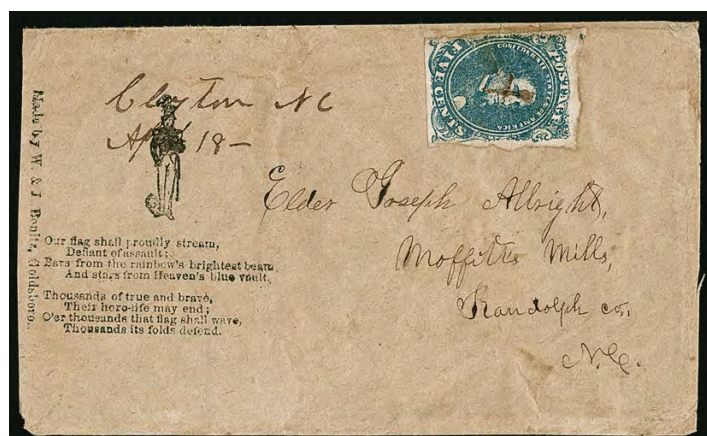 Clayton NC
Apl 18–
POSTAGE
CONFEDERATE STATES OF AMERICA
FIVE CENTS
Made by W & J Bonitz, Goldsboro.
Elder Joseph Allbright,
Moffitts Mills,
Randolph co,
N.C.
Our flag shall proudly stream,
Defiant of assault;
Bars from the rainbow's brightest beam,
And stars from Heaven's blue vault.
Thousands of true and brave,
Their hero-life may end;
O'er thousands that flag shall wave,
Thousands its folds defend.